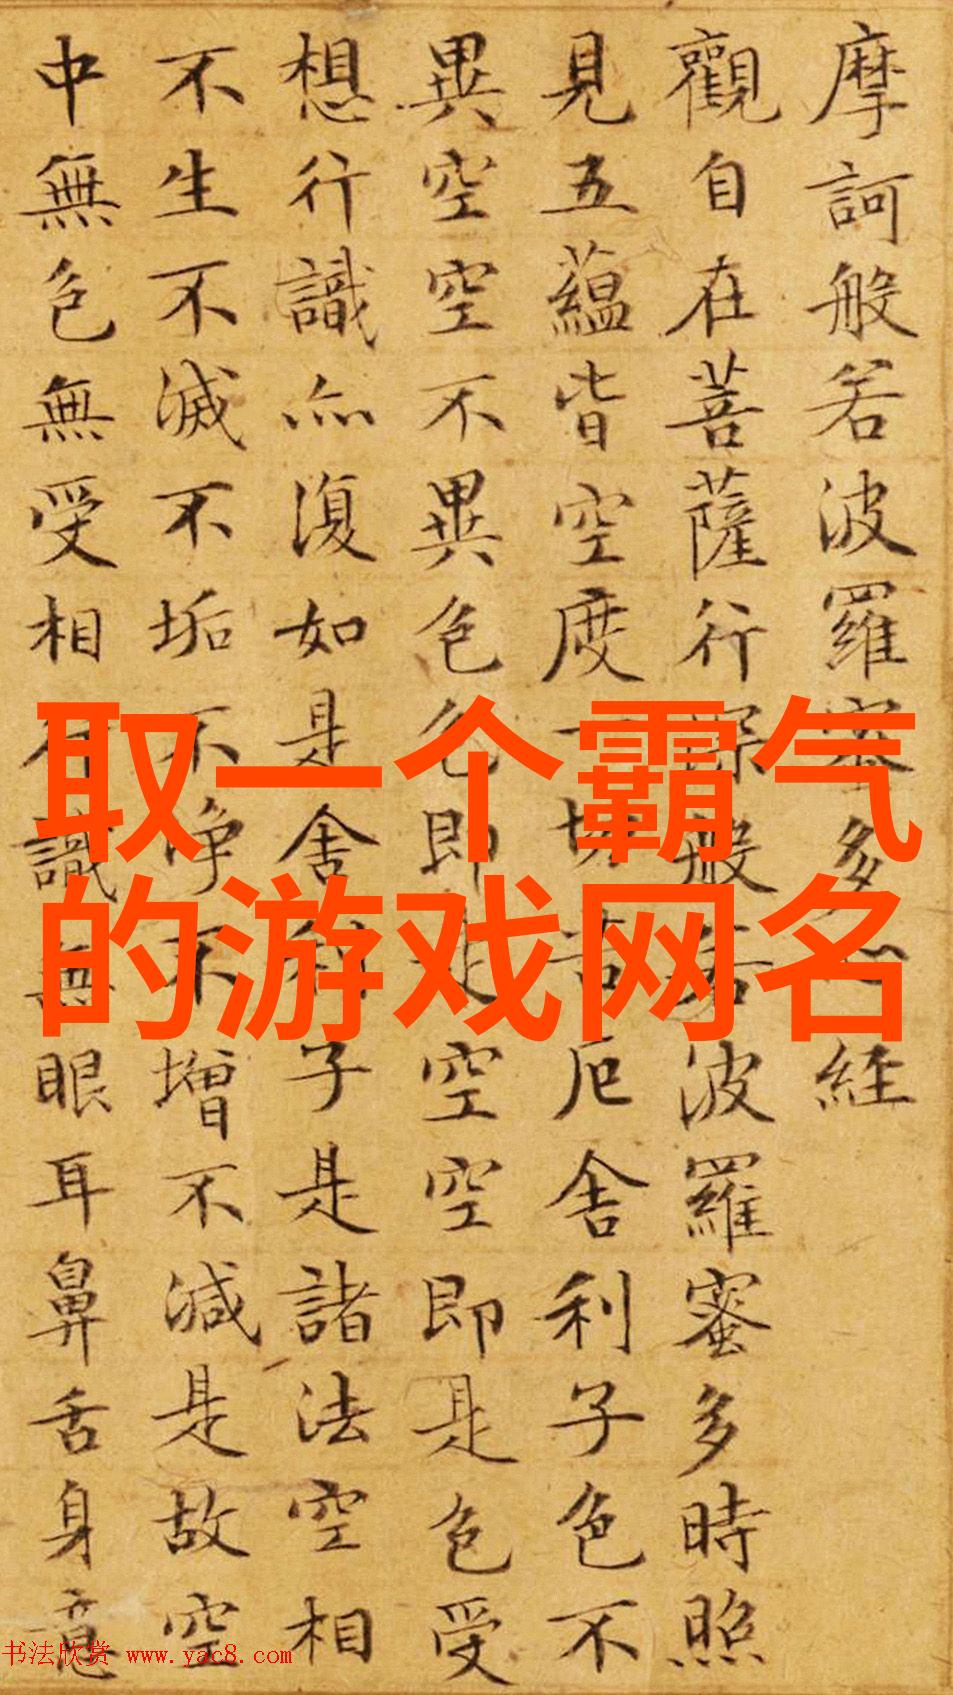 摩訶般若波羅蜜多心経
觀自在菩薩行深般若波羅蜜多時照
見五蘊皆空度一切苦厄舍利子色不
異空空不異色色即是空空即是色受
想行識亦復如是舍利子是諸法空相
不生不滅不垢不净不增不減是故空
中無色無受想行識無眼耳鼻舌身意
取一个霸气
的游戏网名
书法欣赏 www.yac8.com